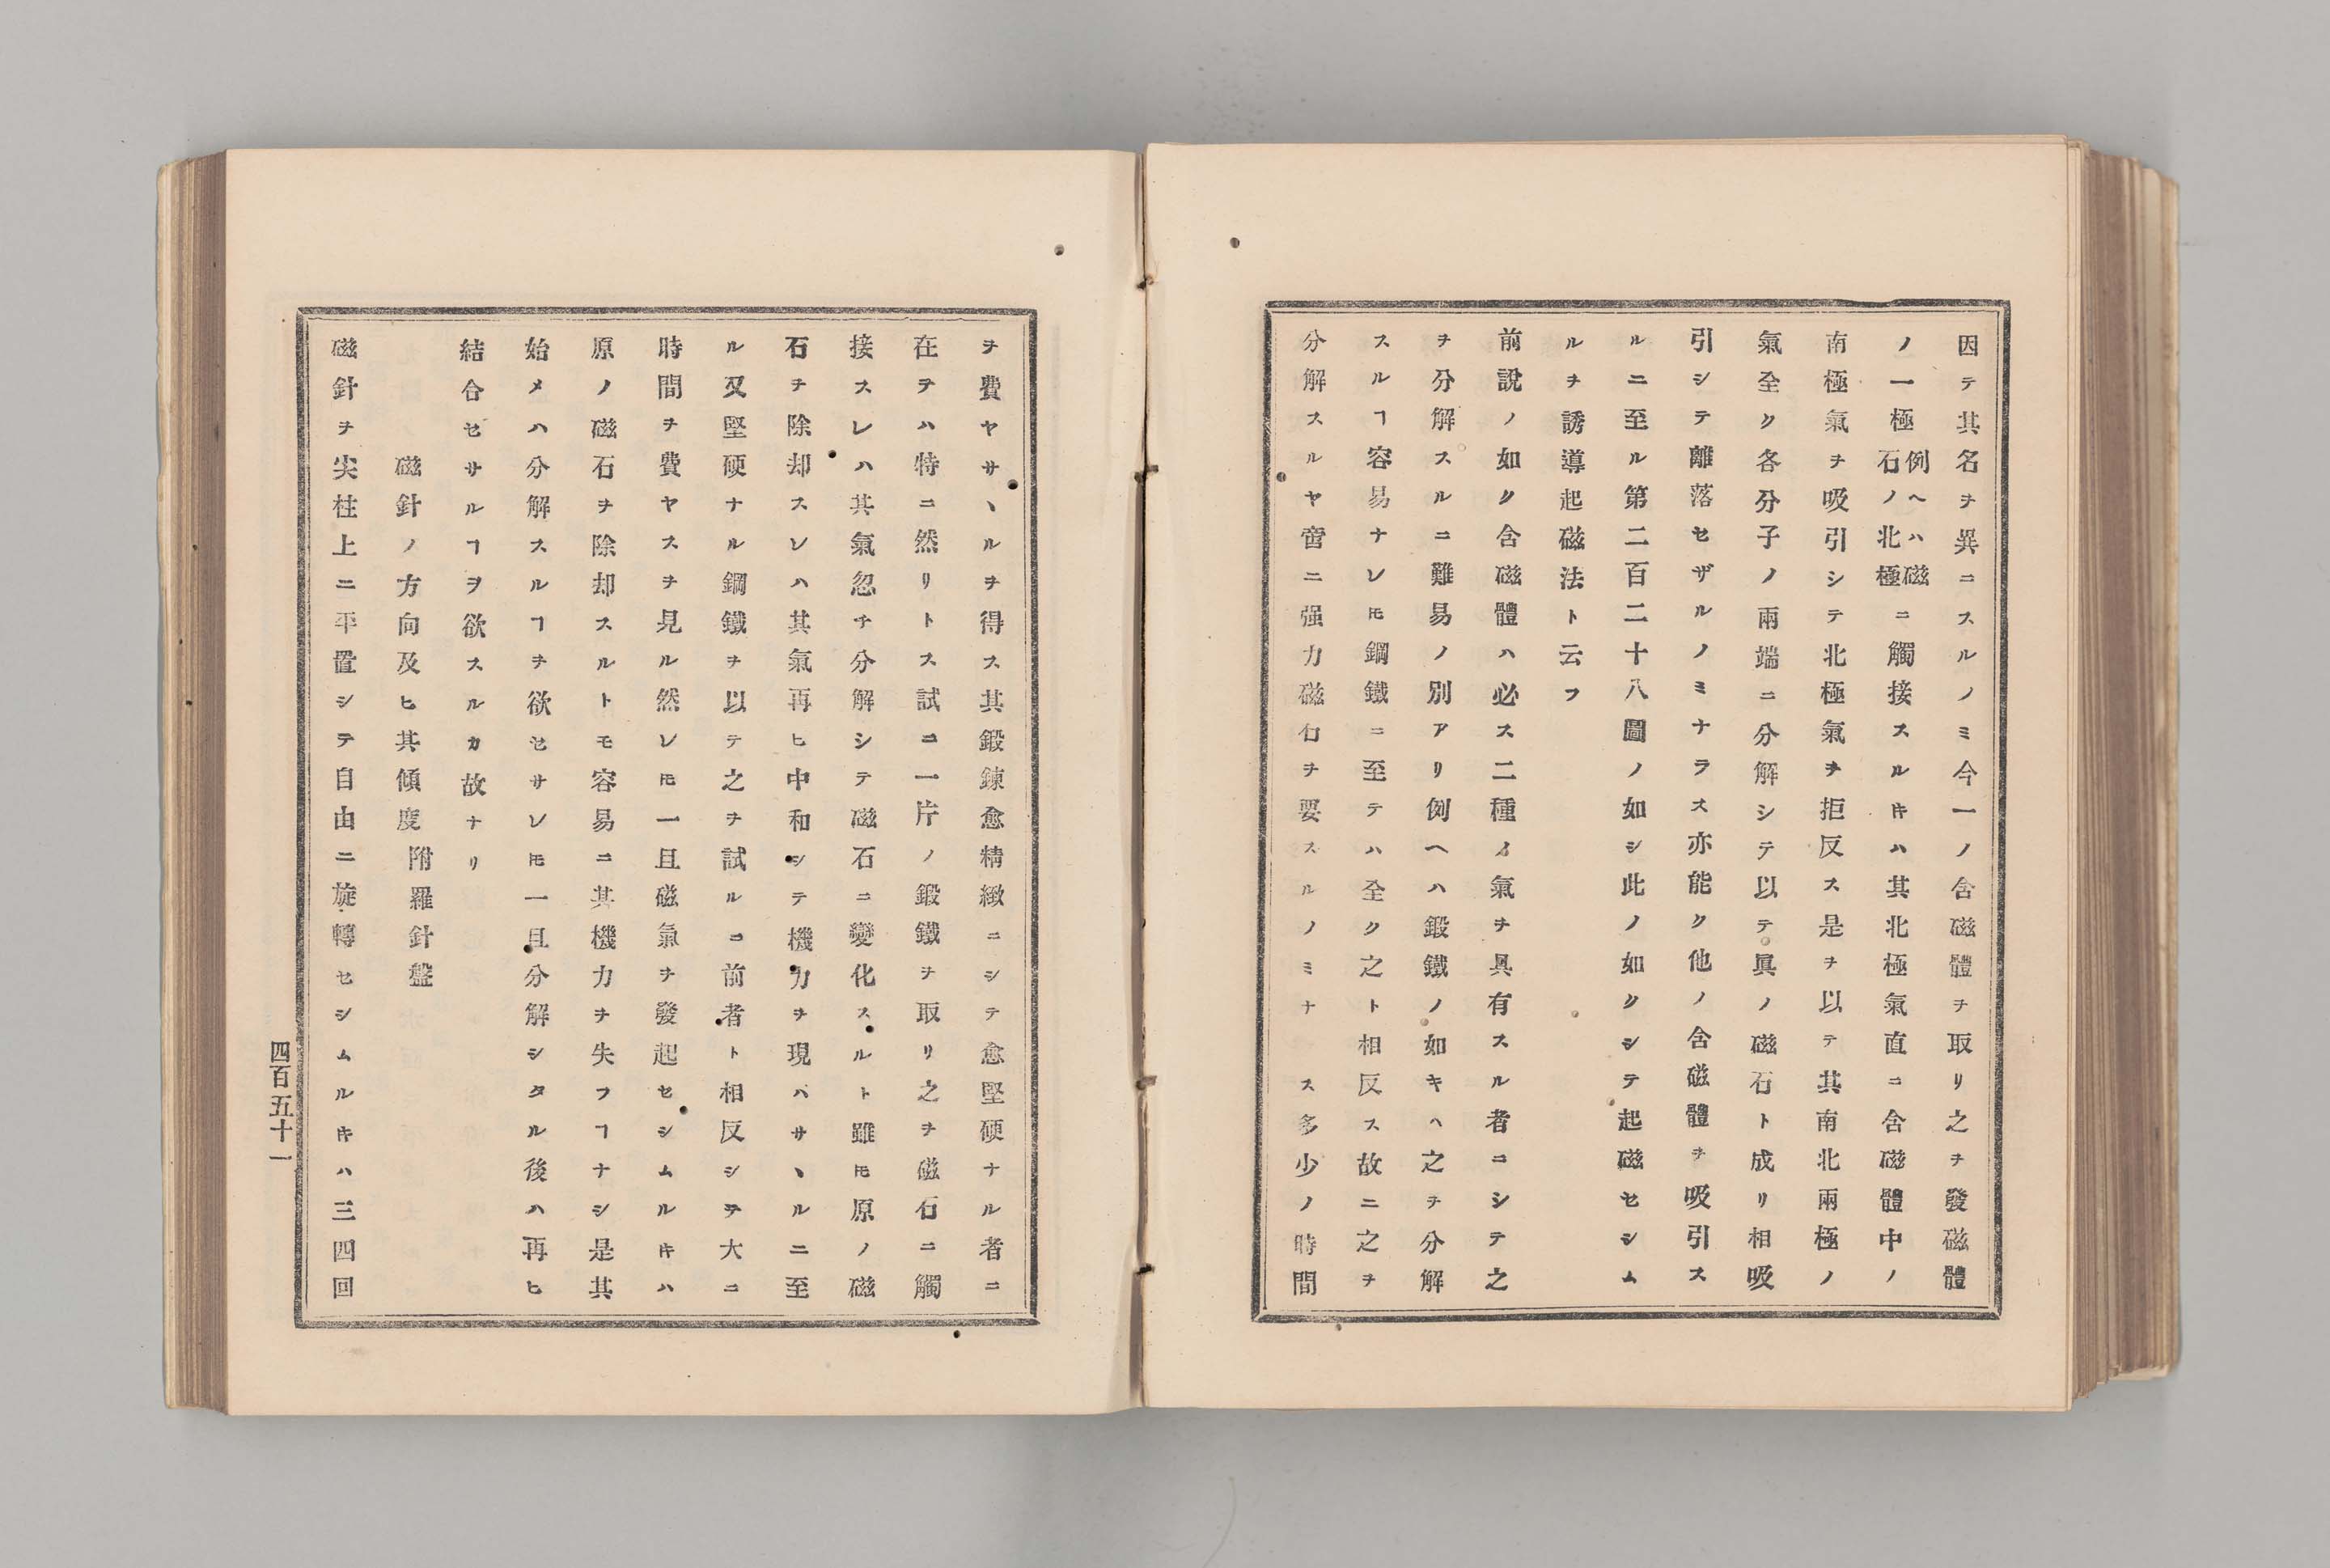 因テ其名ヲ異ニスルノミ今一ノ含磁體ヲ取リ之ヲ發磁體
ノ一極例ヘハ磁石ノ北極ニ觸接スルキハ其北極氣直ニ含磁體中ノ
南極氣ヲ吸引シテ北極氣ヲ拒反ス是ヲ以テ其南北兩極ノ
氣全ク各分子ノ兩端ニ分解シテ以テ眞ノ磁石ト成リ相吸
引シテ離落セザルノミナラス亦能ク他ノ含磁體ヲ吸引ス
ルニ至ル第二百二十八圖ノ如シ此ノ如クシテ起磁セシム
ルヲ誘導起磁法ト云フ
前説ノ如ク含磁體ハ必ス二種ノ氣ヲ具有スル者ニシテ之
ヲ分解スルニ難易ノ別アリ例ヘハ鍛鐵ノ如キヘ之ヲ分解
スルヿ容易ナレ𪜈鋼鐵ニ至テハ全ク之ト相反ス故ニ之ヲ
分解スルヤ啻ニ强力磁石ヲ要スルノミナ ス多少ノ時間
ヲ費ヤサヽルヲ得ス其鍛錬愈精緻ニシテ愈堅硬ナル者ニ
在ヲハ特ニ然リトス試ニ一片ノ鍛鐵ヲ取リ之ヲ磁石ニ觸
接スレハ其氣忽チ分解シテ磁石ニ變化スルト雖𪜈原ノ磁
石ヲ除却スレハ其氣再ヒ中和シテ機力ヲ現ハサヽルニ至
ル又堅硬ナル鋼鐵ヲ以テ之ヲ試ルニ前者ト相反シテ大ニ
時間ヲ費ヤスヲ見ル然レ𪜈一且磁氣ヲ發起セシムルキハ
原ノ磁石ヲ除却スルトモ容易ニ其機力ヲ失フヿナシ是其
始メハ分解スルヿヲ欲セサレ𪜈一且分解シタル後ハ再ヒ
結合セサルヿヲ欲スルカ故ナリ
磁針ノ方向及ヒ其傾度附羅針盤
磁針ヲ尖柱上ニ平置シテ自由ニ旋轉セシムルキハ三四回
四百五十一